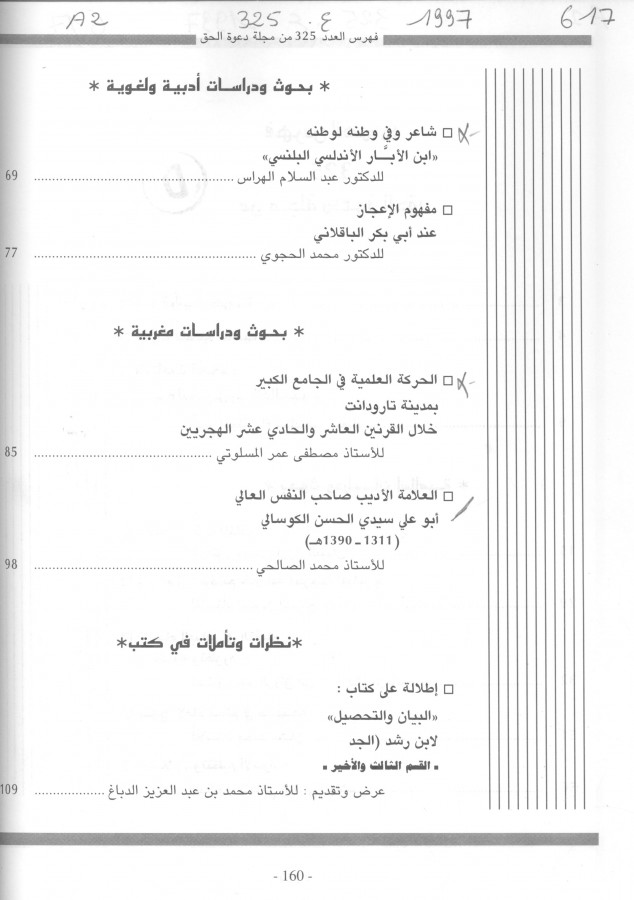 A2 325 ع. 1997 617
فهرس العدد 325 من مجلة دعوة الحق
* بحوث ودراسات أدبية ولغوية *
□ شاعر وفي وطنه لوطنه
«ابن الأبَّار الأندلسي البلنسي»
للدكتور عبد السلام الهراس ........................................ 69
□ مفهوم الإعجاز
عند أبي بكر الباقلاني
للدكتور محمد الحجوي ............................................. 77
* بحوث ودراسات مغربية *
□ الحركة العلمية في الجامع الكبير
بمدينة تارودانت
خلال القرنين العاشر والحادي عشر الهجريين
للأستاذ مصطفى عمر المسلوتي .................................... 85
□ العلامة الأديب صاحب النفس العالي
أبو علي سيدي الحسن الكوسالي
(1311 - 1390هـ)
للأستاذ محمد الصالحي ............................................ 98
*نظرات وتأملات في كتب*
□ إطلالة على كتاب :
«البيان والتحصيل»
لابن رشد (الجد
- القسم الثالث والأخير -
عرض وتقديم : للأستاذ محمد بن عبد العزيز الدباغ .................. 109
- 160 -